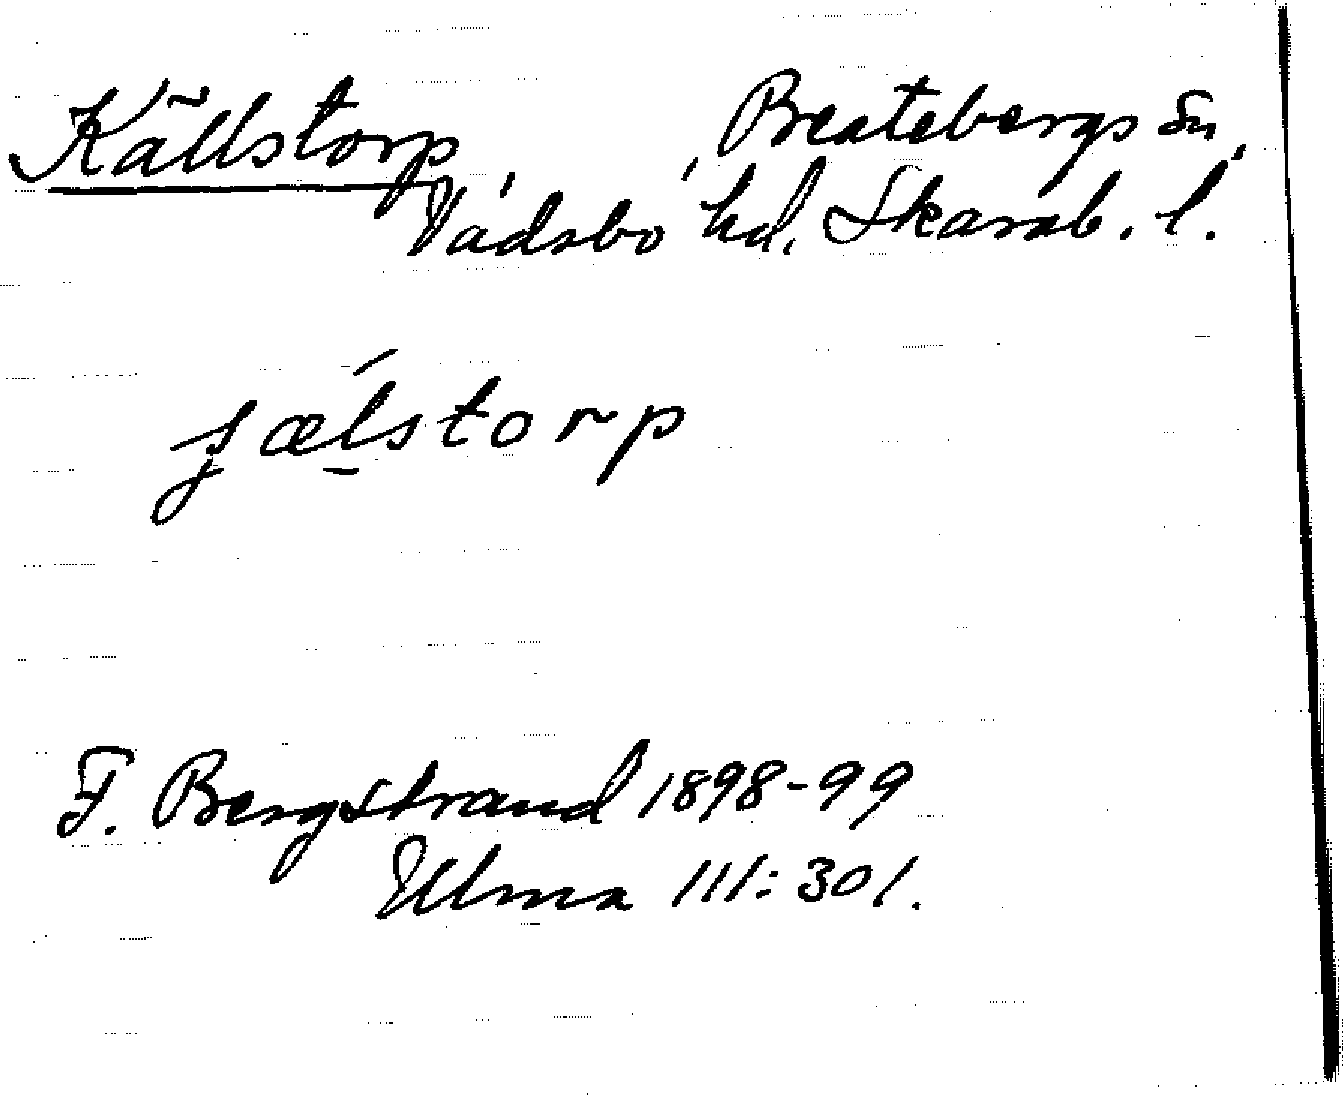 Källstorp, Beatebergs sn,
Vadsbo hd, Skarab. l.
ʃæ̠lstorp
F. Bergstrand 1898-99
Ulma 111:301.